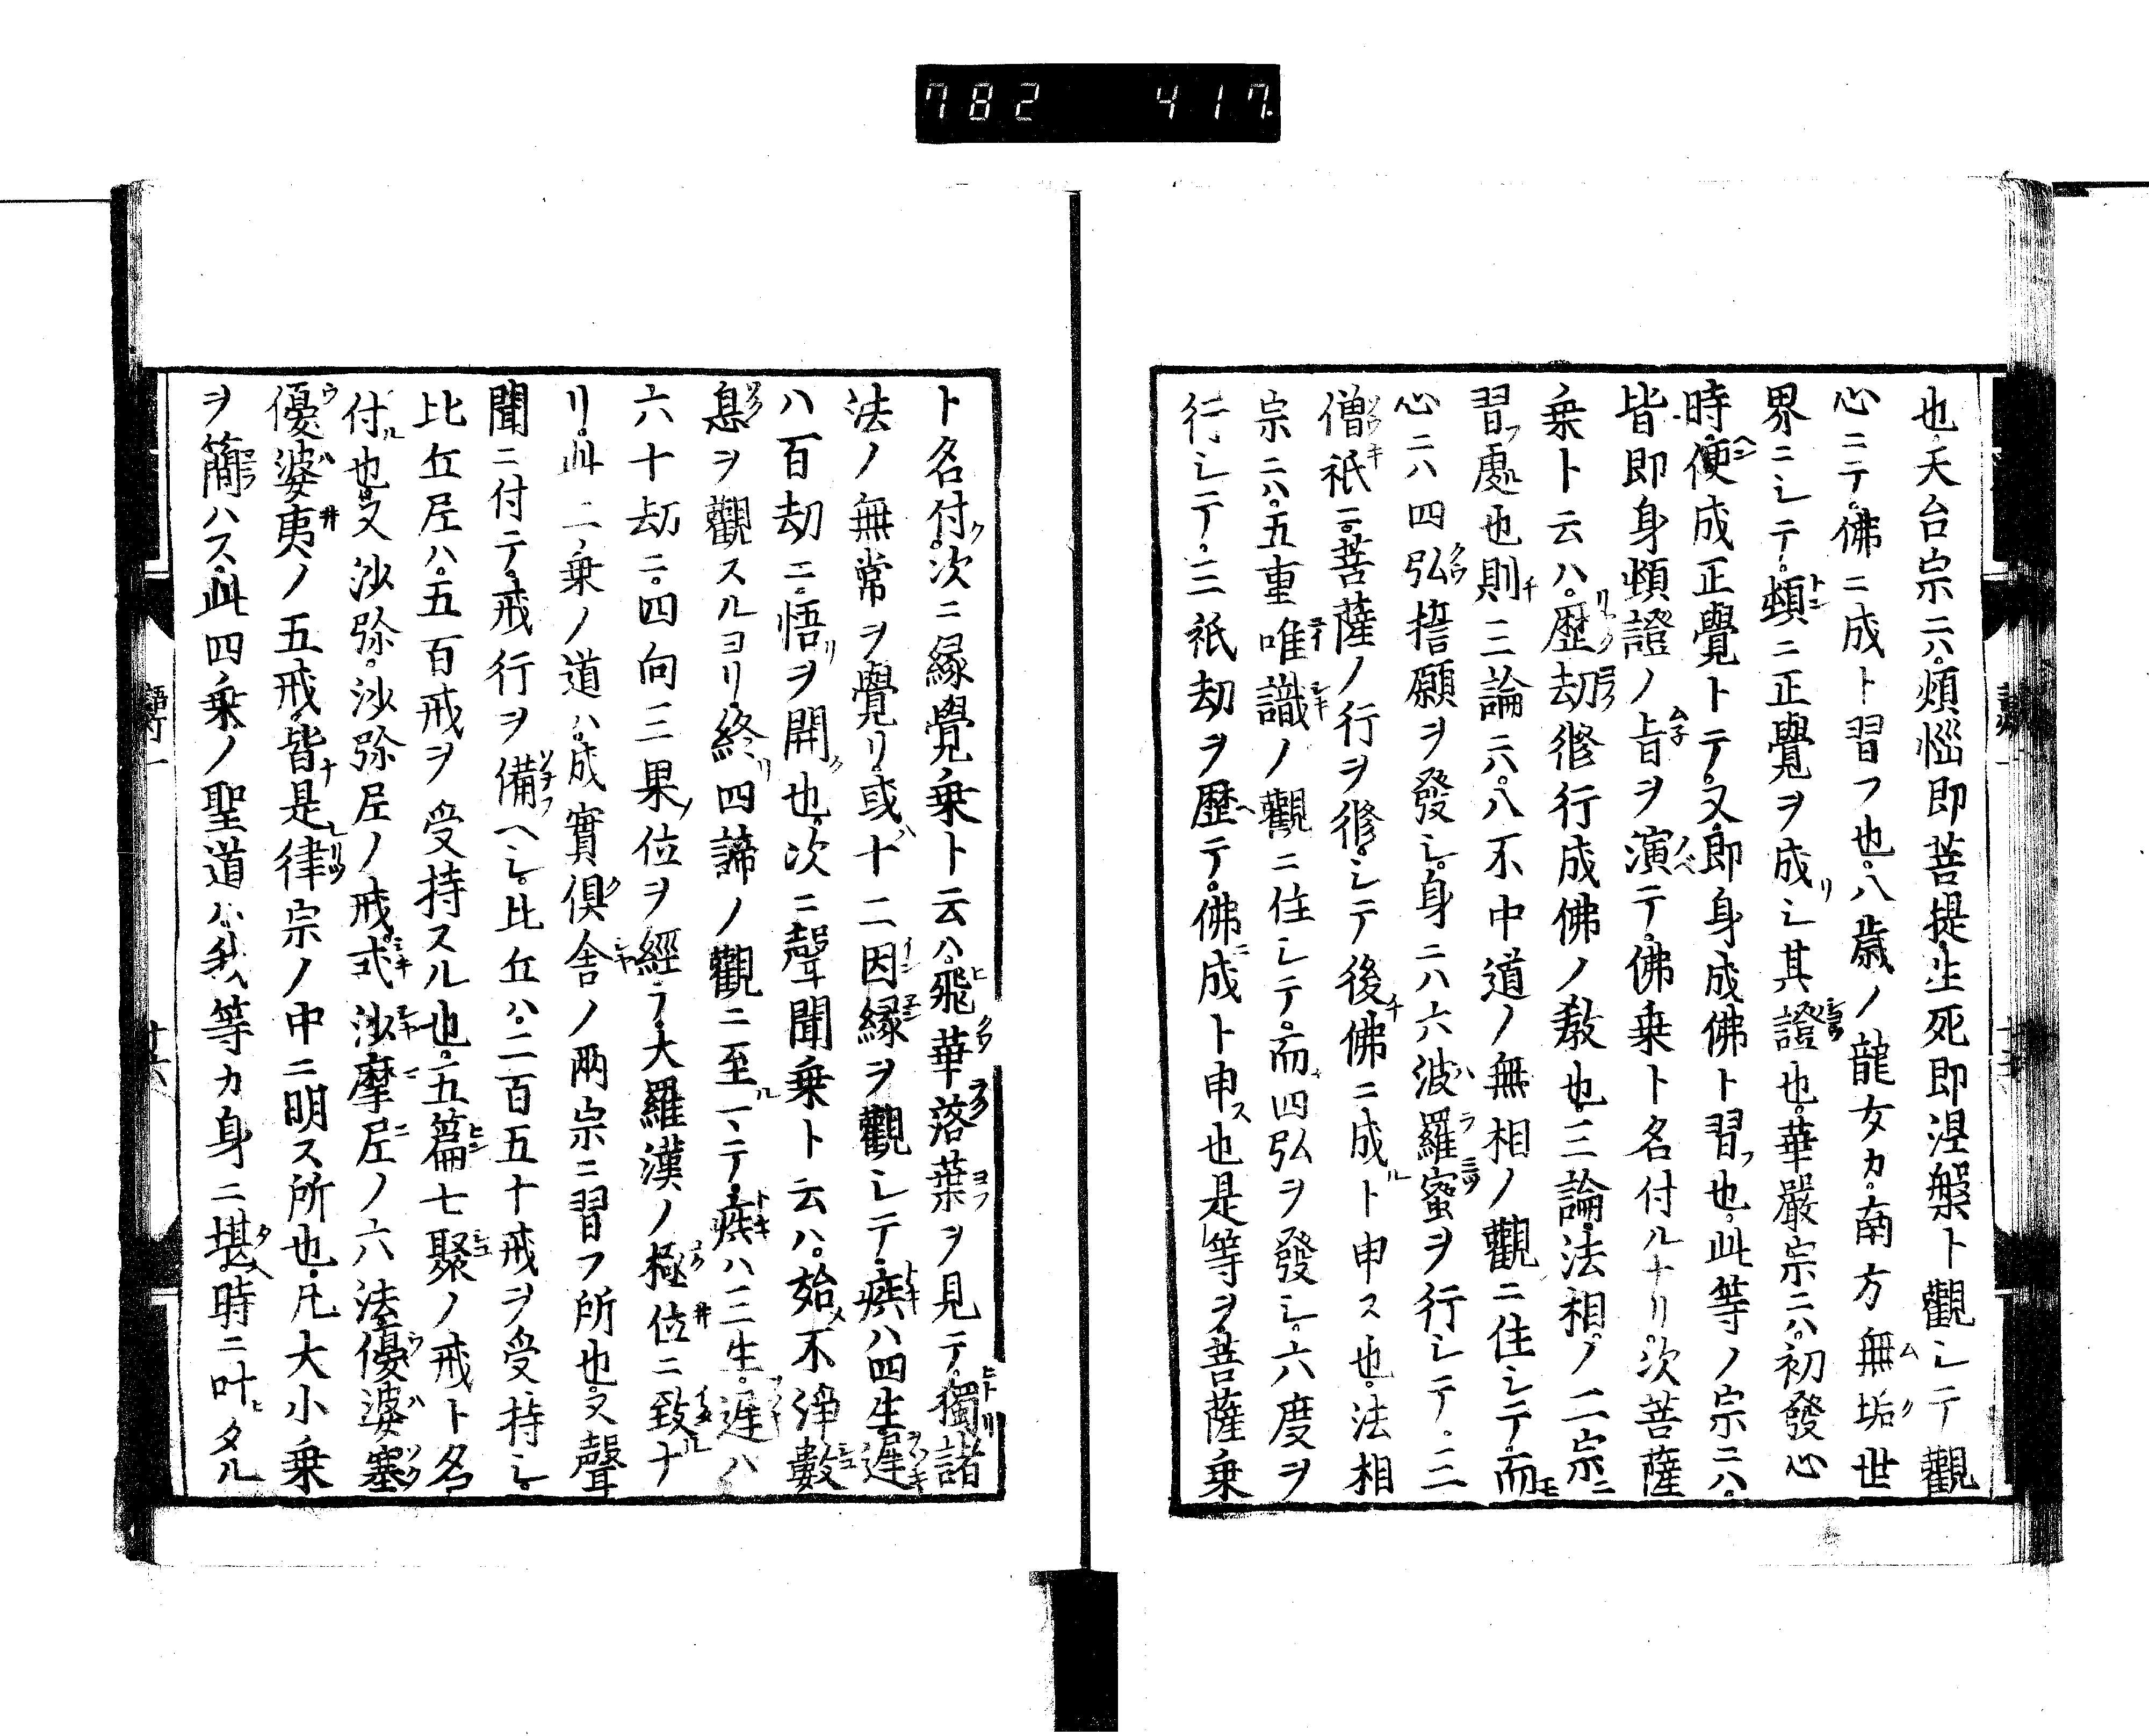 782 417
也天台宗ニハ煩惱即菩提生死即涅槃ト觀シテ觀
心ニテ佛ニ成ト習フ也八歳ノ龍女カ南方無垢世
界ニシテ頓ニ正覺ヲ成シ其證也華嚴宗ニハ初發心
時便成正覺トテ又即身成佛ト習也此等ノ宗ニハ
皆即身頓證ノ旨ヲ演テ佛乗ト名付ルナリ次菩薩
乗ト云ハ歴劫修行成佛ノ教也三論法相ノ二宗ニ
習處也則三論ニハ八不中道ノ無相ノ觀ニ住シテ而
心ニハ四弘誓願ヲ發シ身ニハ六波羅蜜ヲ行シテ三
僧祇ニ菩薩ノ行ヲ修シテ後佛ニ成ト申ス也法相
宗ニハ五重唯識ノ觀ニ住シテ而四弘ヲ發シ六度ヲ
行シテ三祇劫ヲ歴テ佛成ト申ス也是等ヲ菩薩乗
ト名付次ニ縁覺乗ト云ハ飛華落葉ヲ見テ獨諸
法ノ無常ヲ覺リ或十二因縁ヲ觀シテ疾ハ四生遲
八百劫ニ悟ヲ開也次ニ聲聞乗ト云ハ始不淨數
息ヲ觀スルヨリ終四諦ノ觀ニ至ヽテ疾ハ三生遲ハ
六十劫ニ四向三果位ヲ經テ大羅漢ノ極位ニ致ナ
リ此二乗ノ道ハ成實倶舎ノ兩宗ニ習フ所也又聲
聞ニ付テ戒行ヲ備ヘシ比丘ハ二百五十戒ヲ受持シ
比丘尼ハ五百戒ヲ受持スル也五篇七聚ノ戒ト名
付也又沙弥沙弥尼ノ戒式沙摩尼ノ六法優婆塞
優婆夷ノ五戒皆是律宗ノ中ニ明ス所也凡大小乗
ヲ簡ハス此四乗ノ聖道ハ我等カ身ニ堪時ニ叶タル